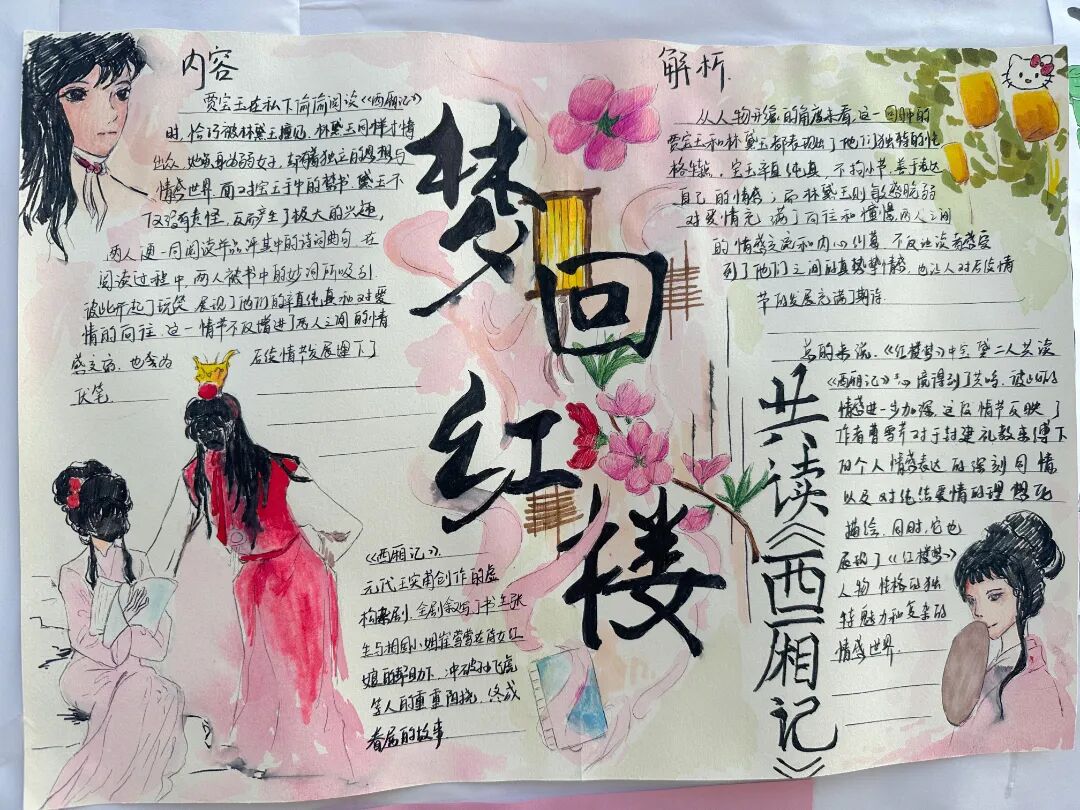 内容
贾宝玉在私下偷偷阅读《西厢记》
时，恰巧被林黛玉撞见，林黛玉同样才情
出众，她虽身为弱女子，却有着独立的思想与
情感世界，面对宝玉手中的禁书，黛玉不
仅没有责怪，反而产生了极大的兴趣，
两人便一同阅读并品评其中的诗词曲句，在
阅读过程中，两人被书中的妙词所吸引
彼此开起了玩笑，展现了他们的率真纯真和对爱
情的向往，这一情节不仅增进了两人之间的情
感交流，也会为后续情节发展埋下了
伏笔
梦回红楼
《西厢记》
元代王实甫创作的虚
构杂剧，全剧叙写了书生张
生与相国小姐崔莺莺在侍女红
娘的帮助下，冲破孙飞虎
等人的重重阻挠，终成
眷属的故事
解析
从人物形象的角度来看，这一回中的
贾宝玉和林黛玉都表现出了他们独特的性
格特点，宝玉率真纯真，不拘小节，善于表达
自己的情感；而林黛玉则敏感脆弱
对爱情充满了向往和憧憬，两人之间
的情感交流和内心纠葛，不仅让读者感受
到了他们之间的真挚情感，也让人对后续情
节的发展充满了期待.
共读《西厢记》
总的来说，《红楼梦》中宝黛二人共读
《西厢记》
情感进一步加深，这段情节反映了
作者曹雪芹对于封建礼教束缚下
的个人情感表达的深刻同情
以及对纯洁爱情的理想化
描绘，同时，它也
展现了《红楼梦》
人物性格的独
特魅力和复杂的
情感世界.